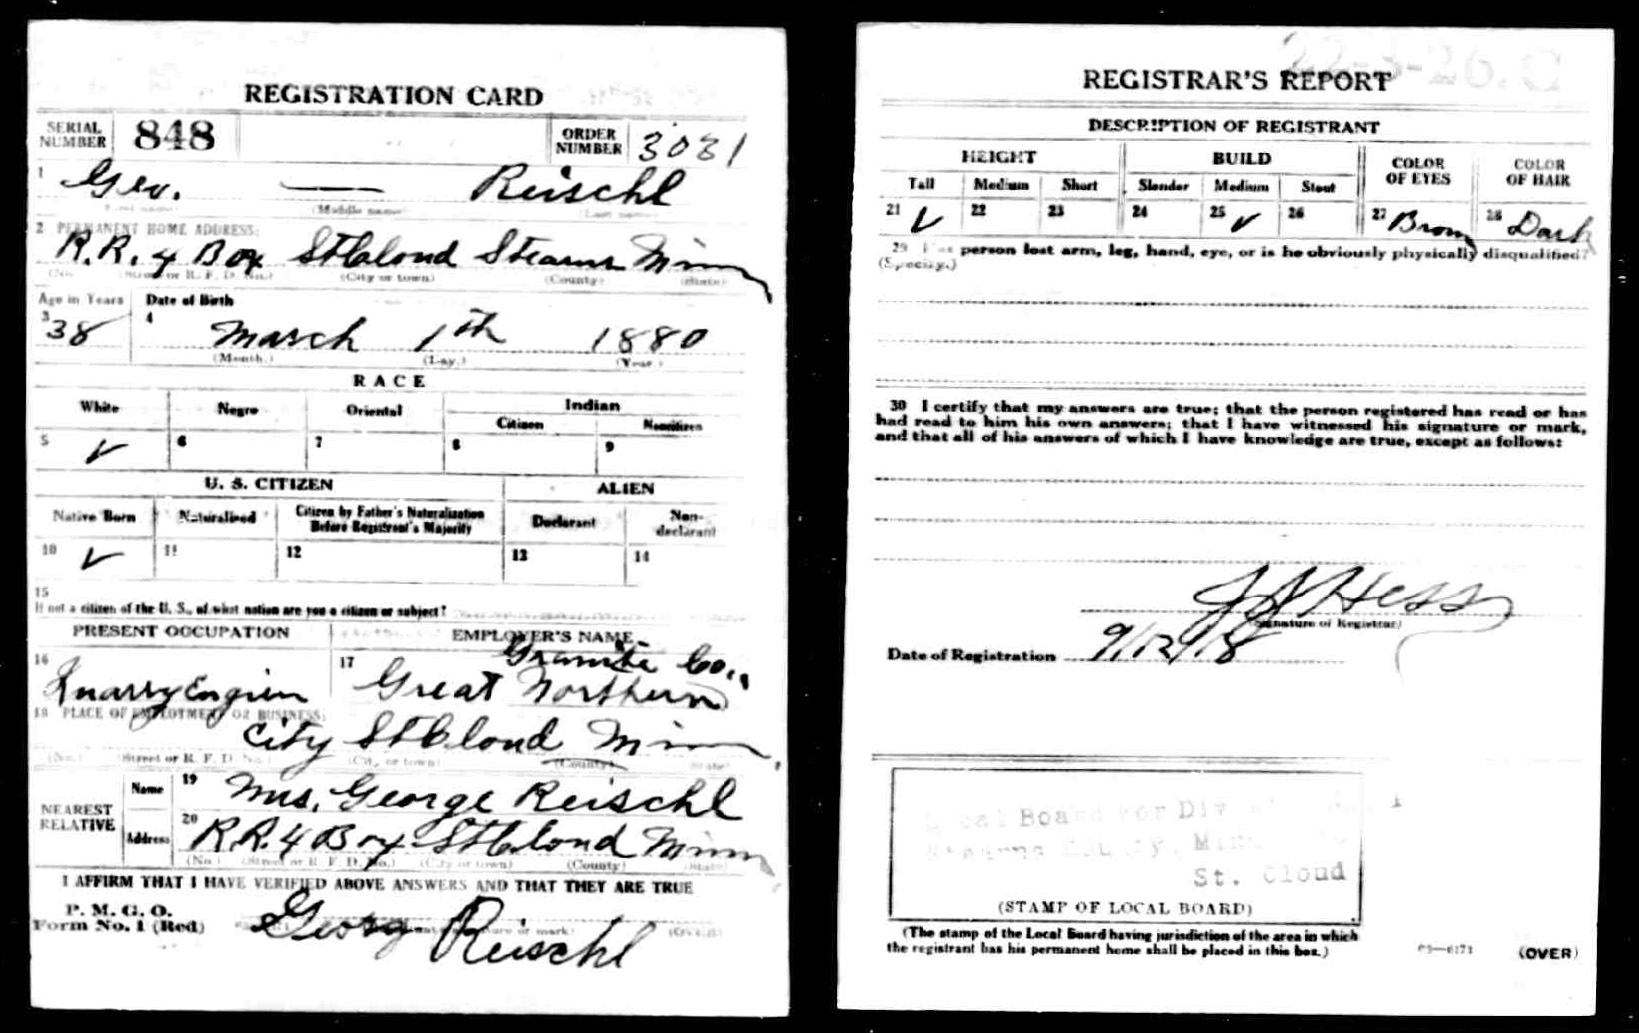 REGISTRATION CARD
SERIAL NUMBER 848 ORDER NUMBER 3031
1 Geo. — Reischl
(First name) (Middle name) (Last name)
2 PERMANENT HOME ADDRESS:
R.R. 4 Box St Cloud Stearns Minn
(No.) (Street or R. F. D. No.) (City or town) (County) (State)
Age in Years Date of Birth
3 38 4 March 1th 1880
(Month.) (Day.) (Year.)
RACE
White Negro Oriental Indian
Citizen Noncitizen
5 ✓ 6 7 8 9
U. S. CITIZEN ALIEN
Native Born Naturalized Citizen by Father's Naturalization Before Registrant's Majority Declarant Non-declarant
10 ✓ 11 12 13 14
15
If not a citizen of the U. S., of what nation are you a citizen or subject?
PRESENT OCCUPATION EMPLOYER'S NAME
Granite Co.
16 17 Great Northern
18 PLACE OF EMPLOYMENT OR BUSINESS:
City St Cloud Minn
(No.) (Street or R. F. D. No.) (City or town) (County) (State)
NEAREST RELATIVE
Name 19 Mrs. George Reischl
Address 20 R.R. 4 Box St Cloud Minn
(No.) (Street or R. F. D. No.) (City or town) (County) (State)
I AFFIRM THAT I HAVE VERIFIED ABOVE ANSWERS AND THAT THEY ARE TRUE
P. M. G. O.
Form No. 1 (Red) Georg Reischl (OVER)
22-3-26. C
REGISTRAR'S REPORT
DESCRIPTION OF REGISTRANT
HEIGHT BUILD COLOR OF EYES COLOR OF HAIR
Tall Medium Short Slender Medium Stout
21 ✓ 22 23 24 25 ✓ 26 27 Brown 28 Dark
29 Has person lost arm, leg, hand, eye, or is he obviously physically disqualified?
(Specify.)
30 I certify that my answers are true; that the person registered has read or has
had read to him his own answers; that I have witnessed his signature or mark,
and that all of his answers of which I have knowledge are true, except as follows:
Hess
(Signature of Registrar)
Date of Registration 9/12/18
Local Board For Div 1
Stearns County, Minn
St. Cloud
(STAMP OF LOCAL BOARD)
(The stamp of the Local Board having jurisdiction of the area in which
the registrant has his permanent home shall be placed in this box.)
03—6171 (OVER)